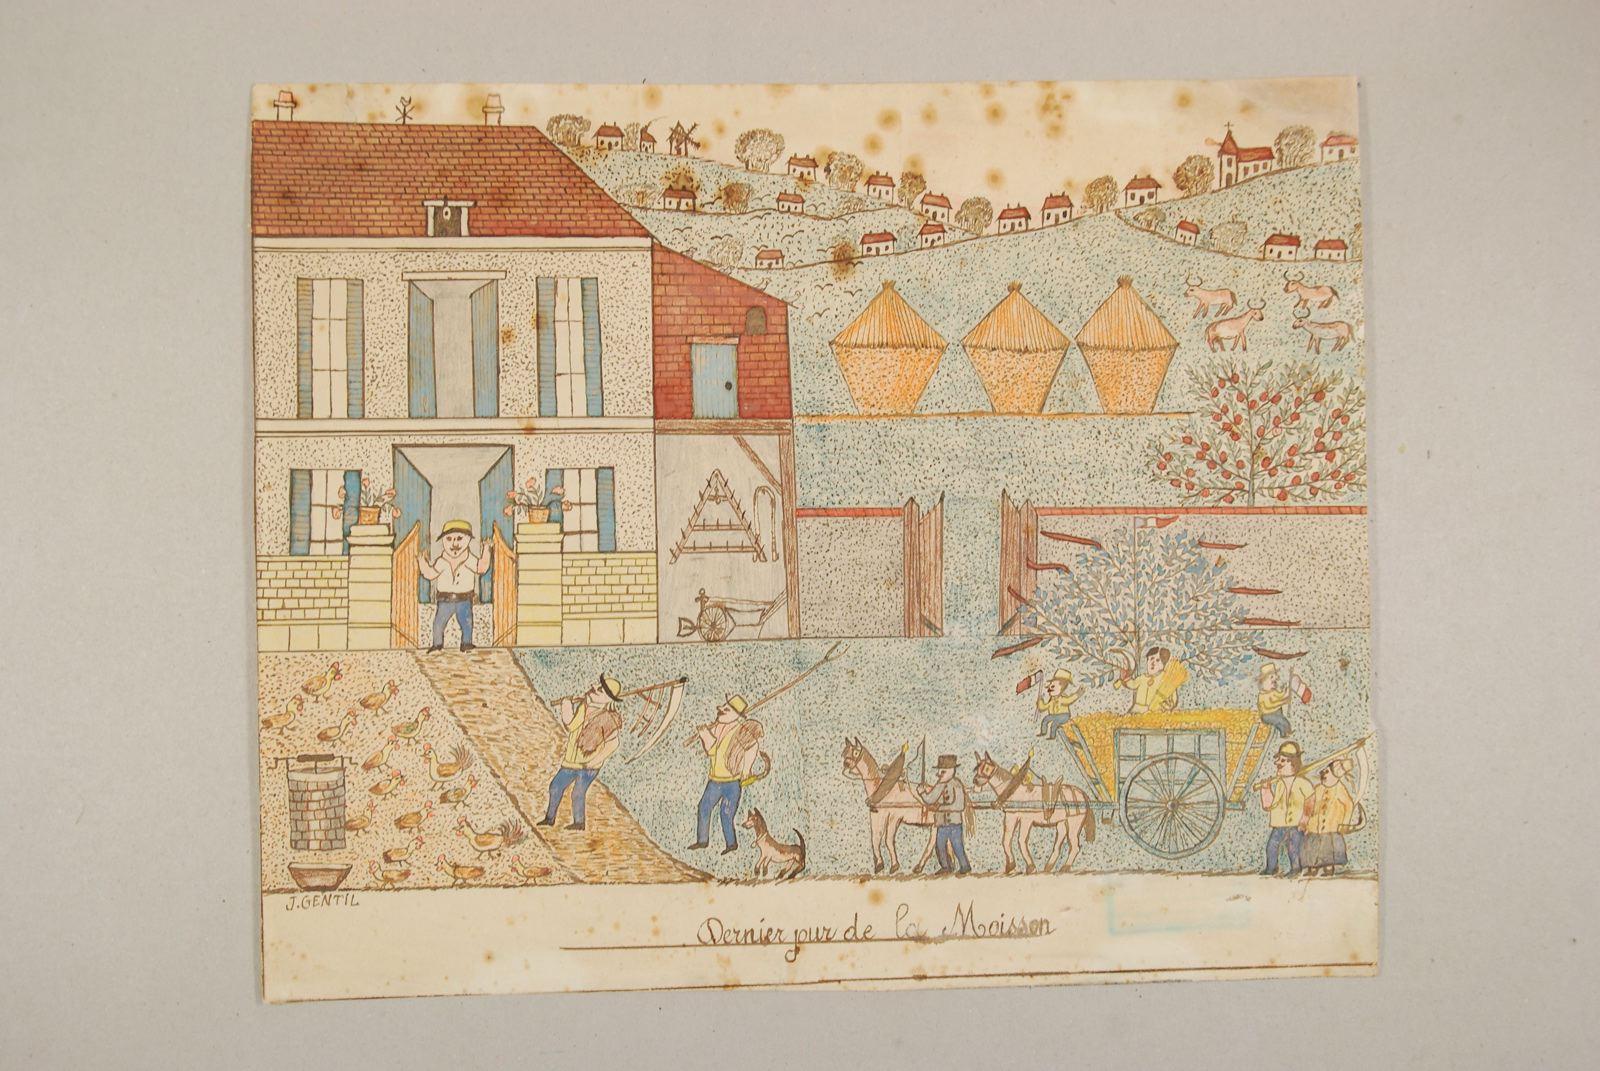 J. GENTIL
Dernier jour de la Moisson